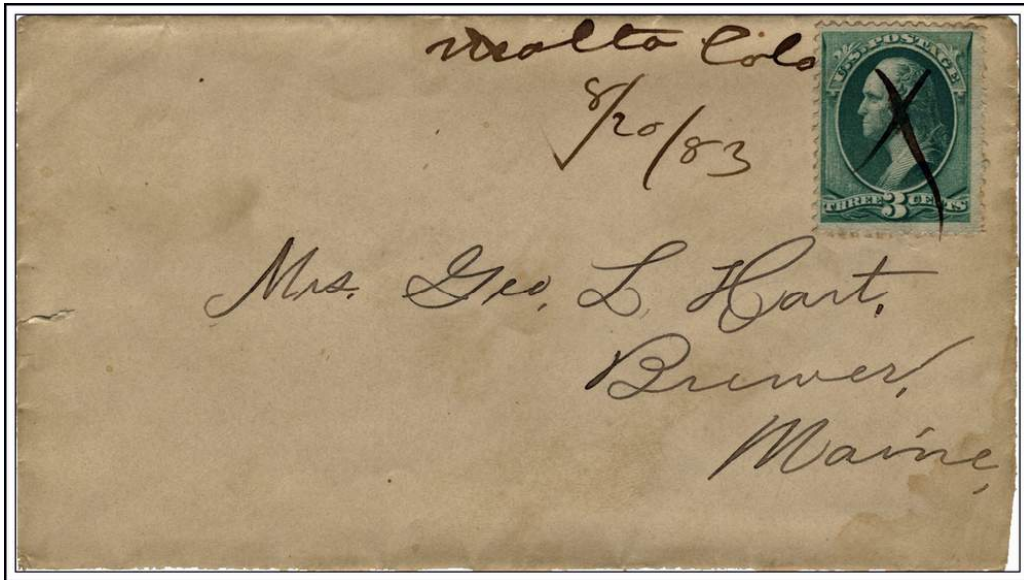 Malta Colo
8/20/83
U.S. POSTAGE
THREE 3 CENTS
Mrs. Geo. L. Hart,
Brewer,
Maine,